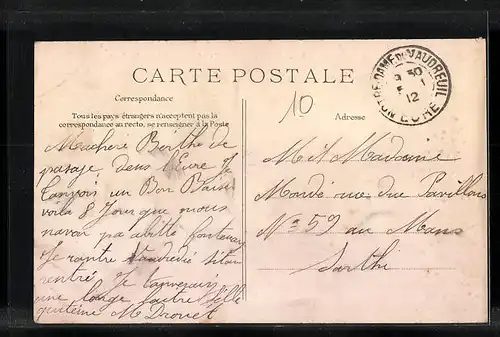 CARTE POSTALE
Correspondance
Tous les pays étrangers n'acceptent pas la
correspondance au recto, se renseigner à la Poste
Adresse
10
NOTRE-DAME DU VAUDREUIL
30
12
EURE
Machere Berthe de
pasage dens l'Eure Je
un Bon Baiser
voila 8 Jour que nous
navon pa
Je rantre vandredie sitau
rentré Je
une longe laitre
M Drouet
M et Madame
rue du Pavillons
No 59 au Mans
Sarthe